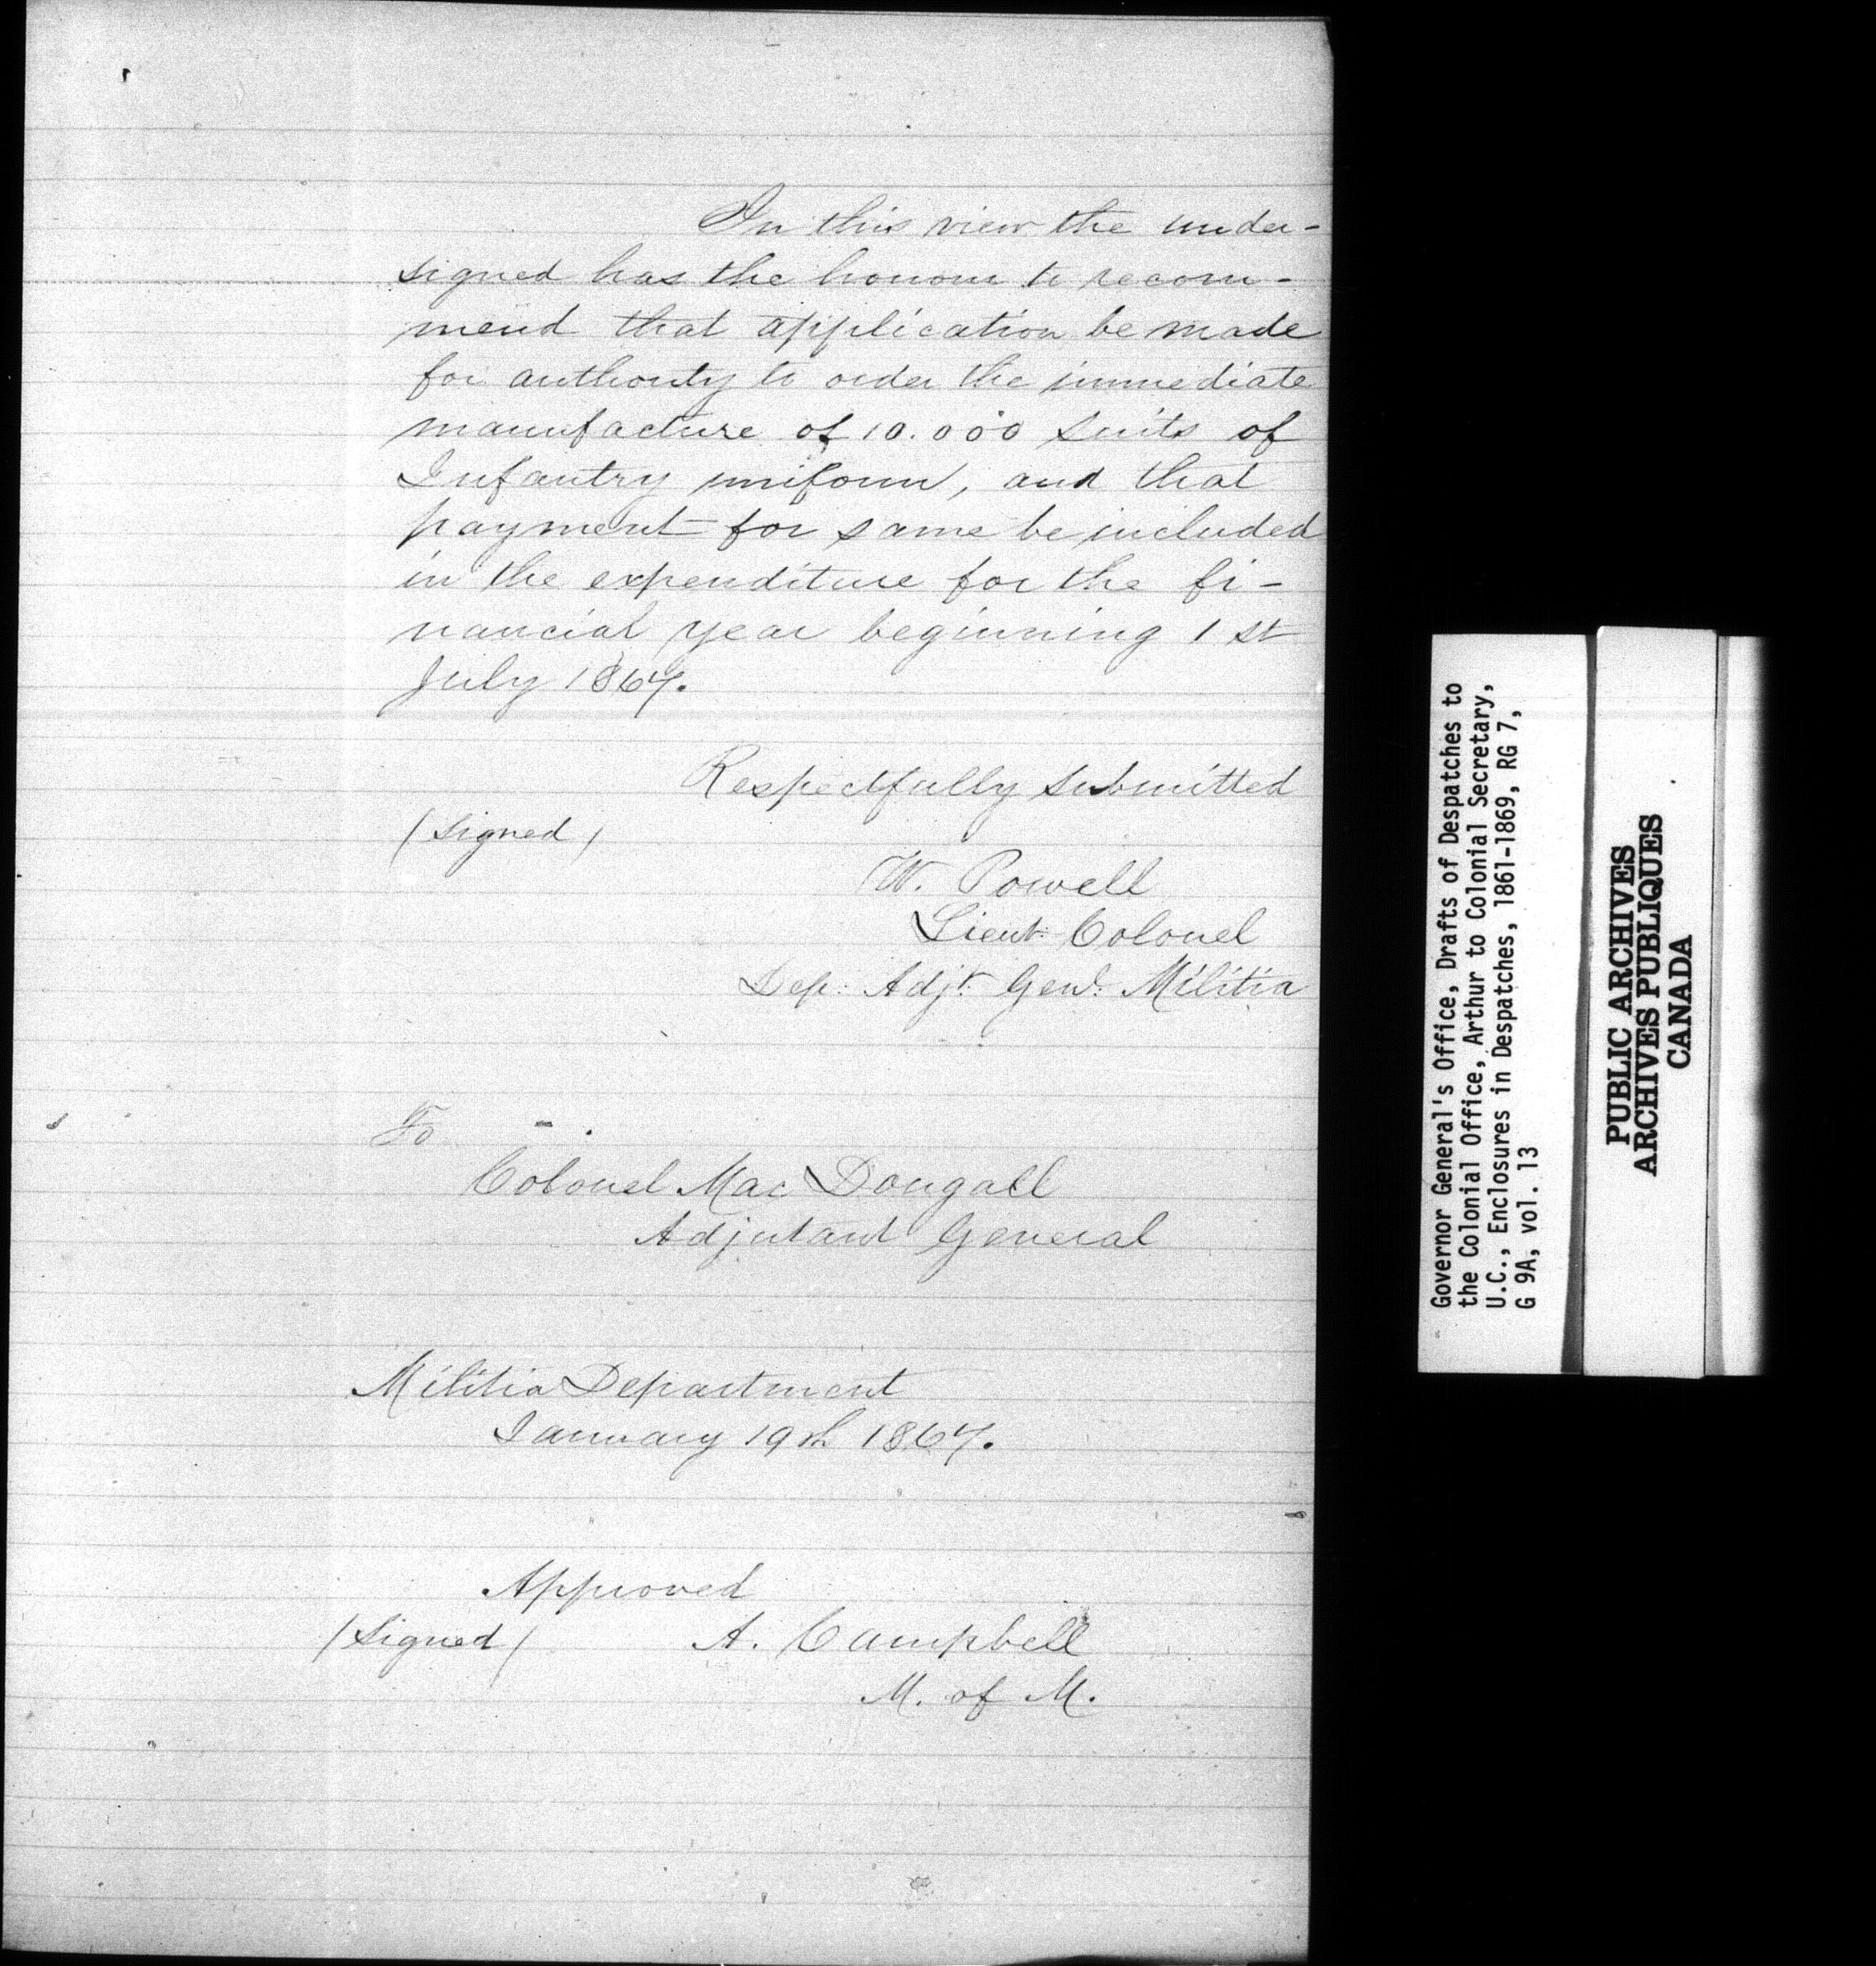 In this view the under-
signed has the honour to recom-
mend that application be made
for authority to order the immediate
manufacture of 10.000 suits of
Infantry uniform, and that
payment for same be included
in the expenditure for the fi-
nancial year beginning 1st
July 1867.
Respectfully submitted
(signed)
W. Powell
Lieut: Colonel
Dep: Adjt: Genl: Militia
To
Colonel Mac Dougall
Adjutant General
Militia Department
January 19th 1867.
Approved
(signed) A. Campbell
M. of M.
Governor General's Office, Drafts of Despatches to
the Colonial Office, Arthur to Colonial Secretary,
U.C., Enclosures in Despatches, 1861-1869, RG 7,
G 9A, vol. 13
PUBLIC ARCHIVES
ARCHIVES PUBLIQUES
CANADA